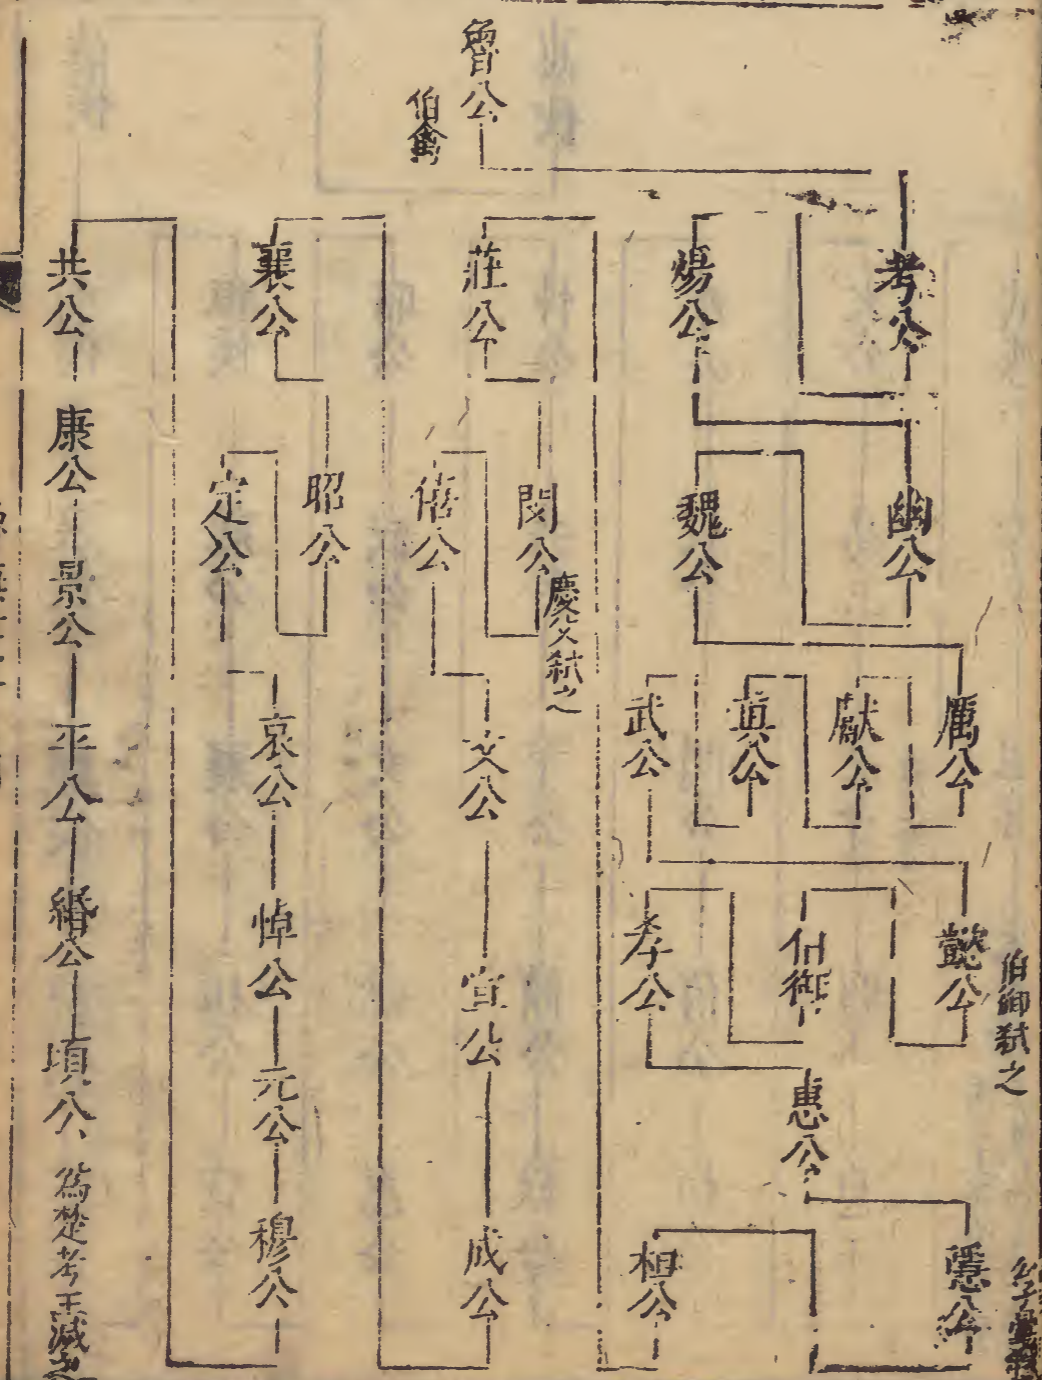 魯公
伯禽
考公
煬公
幽公
魏公
厲公
獻公
眞公
武公
懿公
伯御弒之
伯御
孝公
惠公
隱公
桓公
莊公
閔公
慶父弒之
僖公
文公
宣公
成公
襄公
昭公
定公
哀公
悼公
元公
穆公
共公
康公
景公
平公
緡公
頃公
爲楚考王滅之